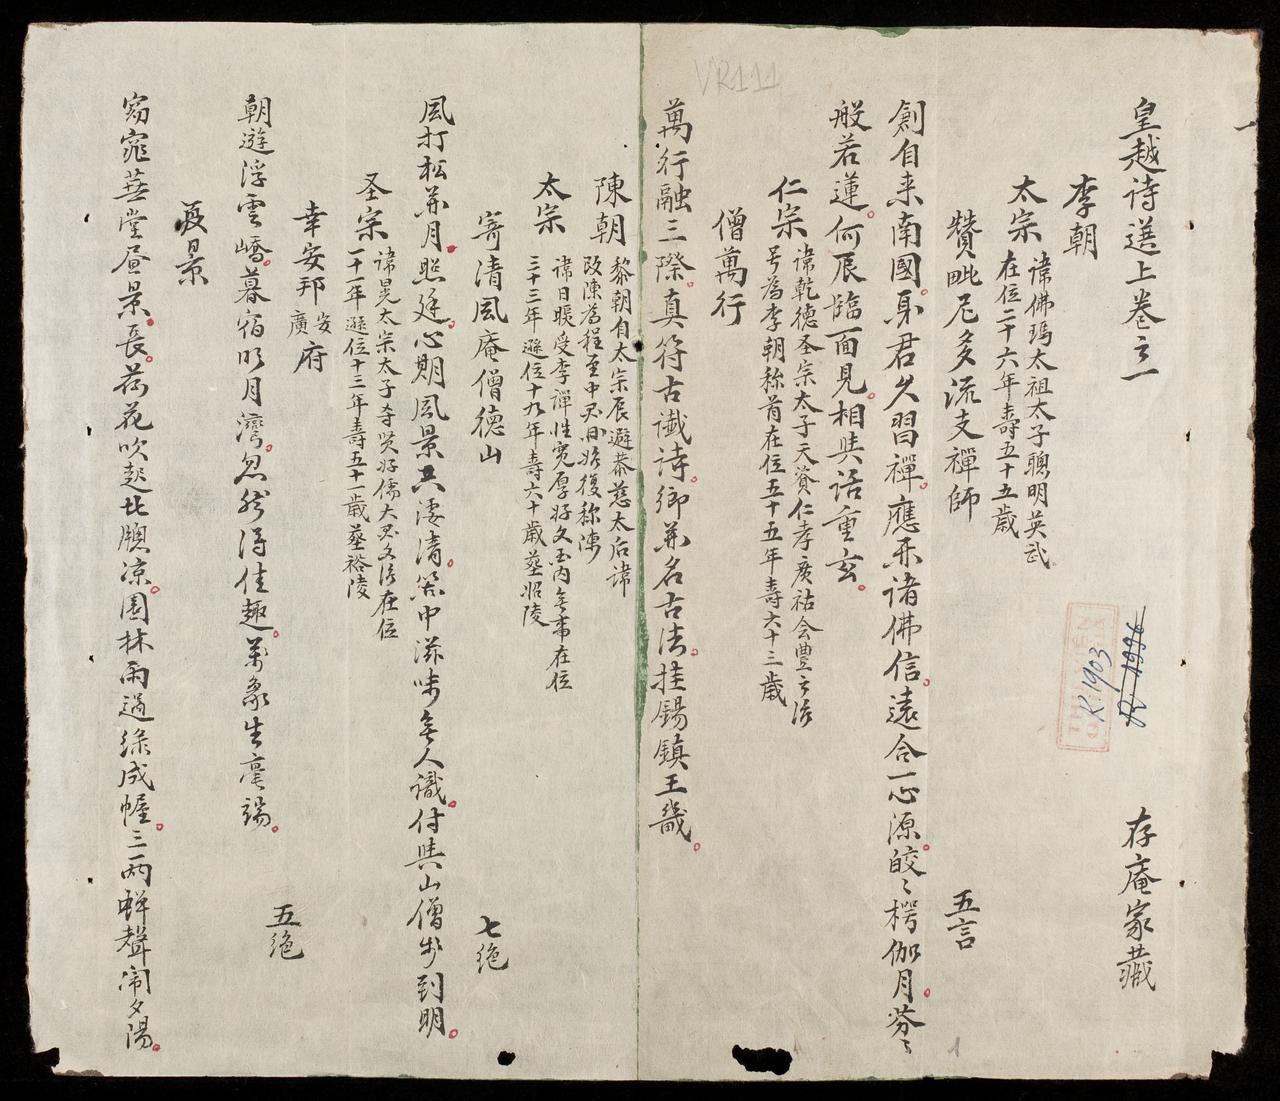 皇越诗選上卷之一
存庵家藏
李朝
太宗 諱佛瑪太祖太子聰明英武
在位二十六年壽五十五歲
贊毗尼多流支禪師 五言
創自来南國身君久習禪應開諸佛信遠合一心源皎〻楞伽月芬〻
般若蓮何辰臨面見相共话重玄
仁宗 諱乾德圣宗太子天資仁孝廣祐会豊之後
号為李朝称首在位五十五年壽六十三歲
僧萬行
萬行融三際真符古讖诗鄉关名古法挂錫鎮王畿
陳朝 黎朝自太宗辰避恭慈太后諱
改陳為程至中興後復称陳
太宗 諱日煚受李禪性寬厚好文国内無事在位
三十三年遜位十九年壽六十歲葬昭陵
寄清風庵僧德山 七绝
风打松关月照廷心期风景共凄清箇中滋味無人識付與山僧步到明
圣宗 諱晃太宗太子尊贤好儒大興文治在位
二十一年遜位十三年壽五十一歲葬裕陵
幸安邦府 安廣 五绝
朝遊浮雲嶠暮宿明月灣忽然得佳趣萬象生毫端
夏景
窈窕華堂昼景長荷花吹起北牕凉園林雨過绿成幄三两蝉聲闹夕陽
VR111
R.1903
R 1996
THƯ VIỆN
1